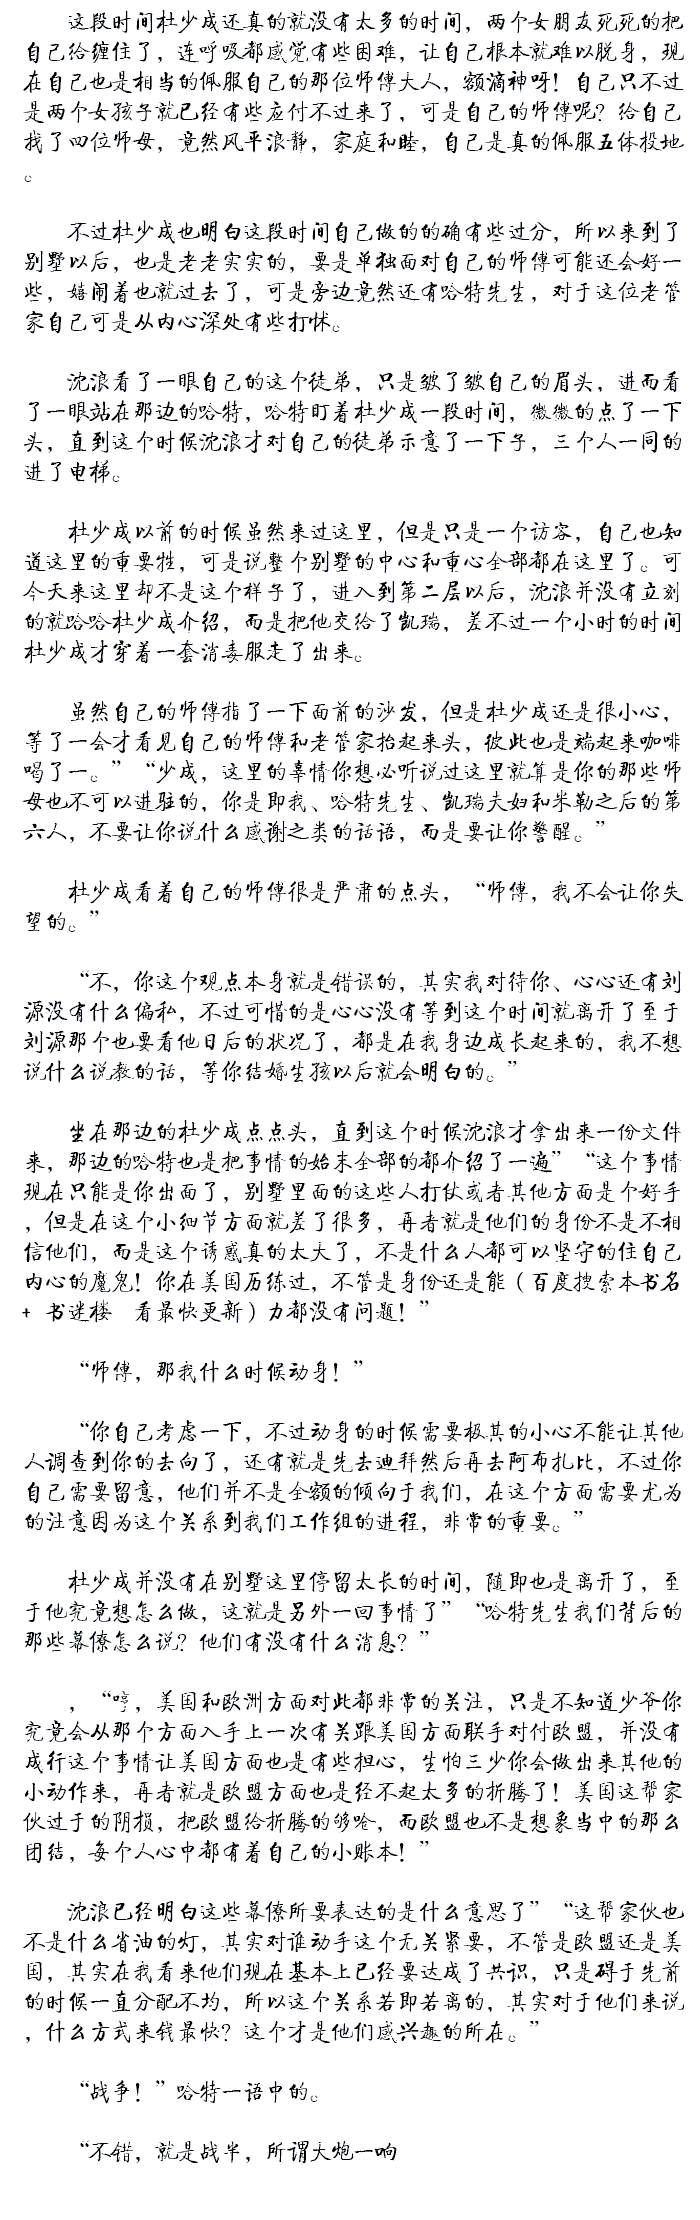 这段时间杜少成还真的就没有太多的时间，两个女朋友死死的把
自己给缠住了，连呼吸都感觉有些困难，让自己根本就难以脱身，现
在自己也是相当的佩服自己的那位师傅大人，额滴神呀！自己只不过
是两个女孩子就已经有些应付不过来了，可是自己的师傅呢？给自己
找了四位师母，竟然风平浪静，家庭和睦，自己是真的佩服五体投地
。
不过杜少成也明白这段时间自己做的的确有些过分，所以来到了
别墅以后，也是老老实实的，要是单独面对自己的师傅可能还会好一
些，嬉闹着也就过去了，可是旁边竟然还有哈特先生，对于这位老管
家自己可是从内心深处有些打怵。
沈浪看了一眼自己的这个徒弟，只是皱了皱自己的眉头，进而看
了一眼站在那边的哈特，哈特盯着杜少成一段时间，微微的点了一下
头，直到这个时候沈浪才对自己的徒弟示意了一下子，三个人一同的
进了电梯。
杜少成以前的时候虽然来过这里，但是只是一个访客，自己也知
道这里的重要牲，可是说整个别墅的中心和重心全部都在这里了。可
今天来这里却不是这个样子了，进入到第二层以后，沈浪并没有立刻
的就哈哈杜少成介绍，而是把他交给了凯瑞，差不过一个小时的时间
杜少成才穿着一套消毒服走了出来。
虽然自己的师傅指了一下面前的沙发，但是杜少成还是很小心，
等了一会才看见自己的师傅和老管家抬起来头，彼此也是端起来咖啡
喝了一。”“少成，这里的事情你想必听说过这里就算是你的那些师
母也不可以进驻的，你是即我、哈特先生、凯瑞夫妇和米勒之后的第
六人，不要让你说什么感谢之类的话语，而是要让你警醒。”
杜少成看着自己的师傅很是严肃的点头，“师傅，我不会让你失
望的。”
“不，你这个观点本身就是错误的，其实我对待你、心心还有刘
源没有什么偏私，不过可惜的是心心没有等到这个时间就离开了至于
刘源那个也要看他日后的状况了，都是在我身边成长起来的，我不想
说什么说教的话，等你结婚生孩以后就会明白的。”
坐在那边的杜少成点点头，直到这个时候沈浪才拿出来一份文件
来，那边的哈特也是把事情的始末全部的都介绍了一遍”“这个事情
现在只能是你出面了，别墅里面的这些人打仗或者其他方面是个好手
，但是在这个小细节方面就差了很多，再者就是他们的身份不是不相
信他们，而是这个诱惑真的太大了，不是什么人都可以坚守的住自己
内心的魔鬼！你在美国历练过，不管是身份还是能（百度搜索本书名
+ 书迷楼 看最快更新）力都没有问题！”
“师傅，那我什么时候动身！”
“你自己考虑一下，不过动身的时候需要极其的小心不能让其他
人调查到你的去向了，还有就是先去迪拜然后再去阿布扎比，不过你
自己需要留意，他们并不是全额的倾向于我们，在这个方面需要尤为
的注意因为这个关系到我们工作组的进程，非常的重要。”
杜少成并没有在别墅这里停留太长的时间，随即也是离开了，至
于他究竟想怎么做，这就是另外一回事情了”“哈特先生我们背后的
那些幕僚怎么说？他们有没有什么消息？”
，“哼，美国和欧洲方面对此都非常的关注，只是不知道少爷你
究竟会从那个方面入手上一次有关跟美国方面联手对付欧盟，并没有
成行这个事情让美国方面也是有些担心，生怕三少你会做出来其他的
小动作来，再者就是欧盟方面也是经不起太多的折腾了！美国这帮家
伙过于的阴损，把欧盟给折腾的够呛，而欧盟也不是想象当中的那么
团结，每个人心中都有着自己的小账本！”
沈浪已经明白这些幕僚所要表达的是什么意思了”“这帮家伙也
不是什么省油的灯，其实对谁动手这个无关紧要，不管是欧盟还是美
国，其实在我看来他们现在基本上已经要达成了共识，只是碍于先前
的时候一直分配不均，所以这个关系若即若离的，其实对于他们来说
，什么方式来钱最快？这个才是他们感兴趣的所在。”
“战争！”哈特一语中的。
“不错，就是战半，所谓大炮一响